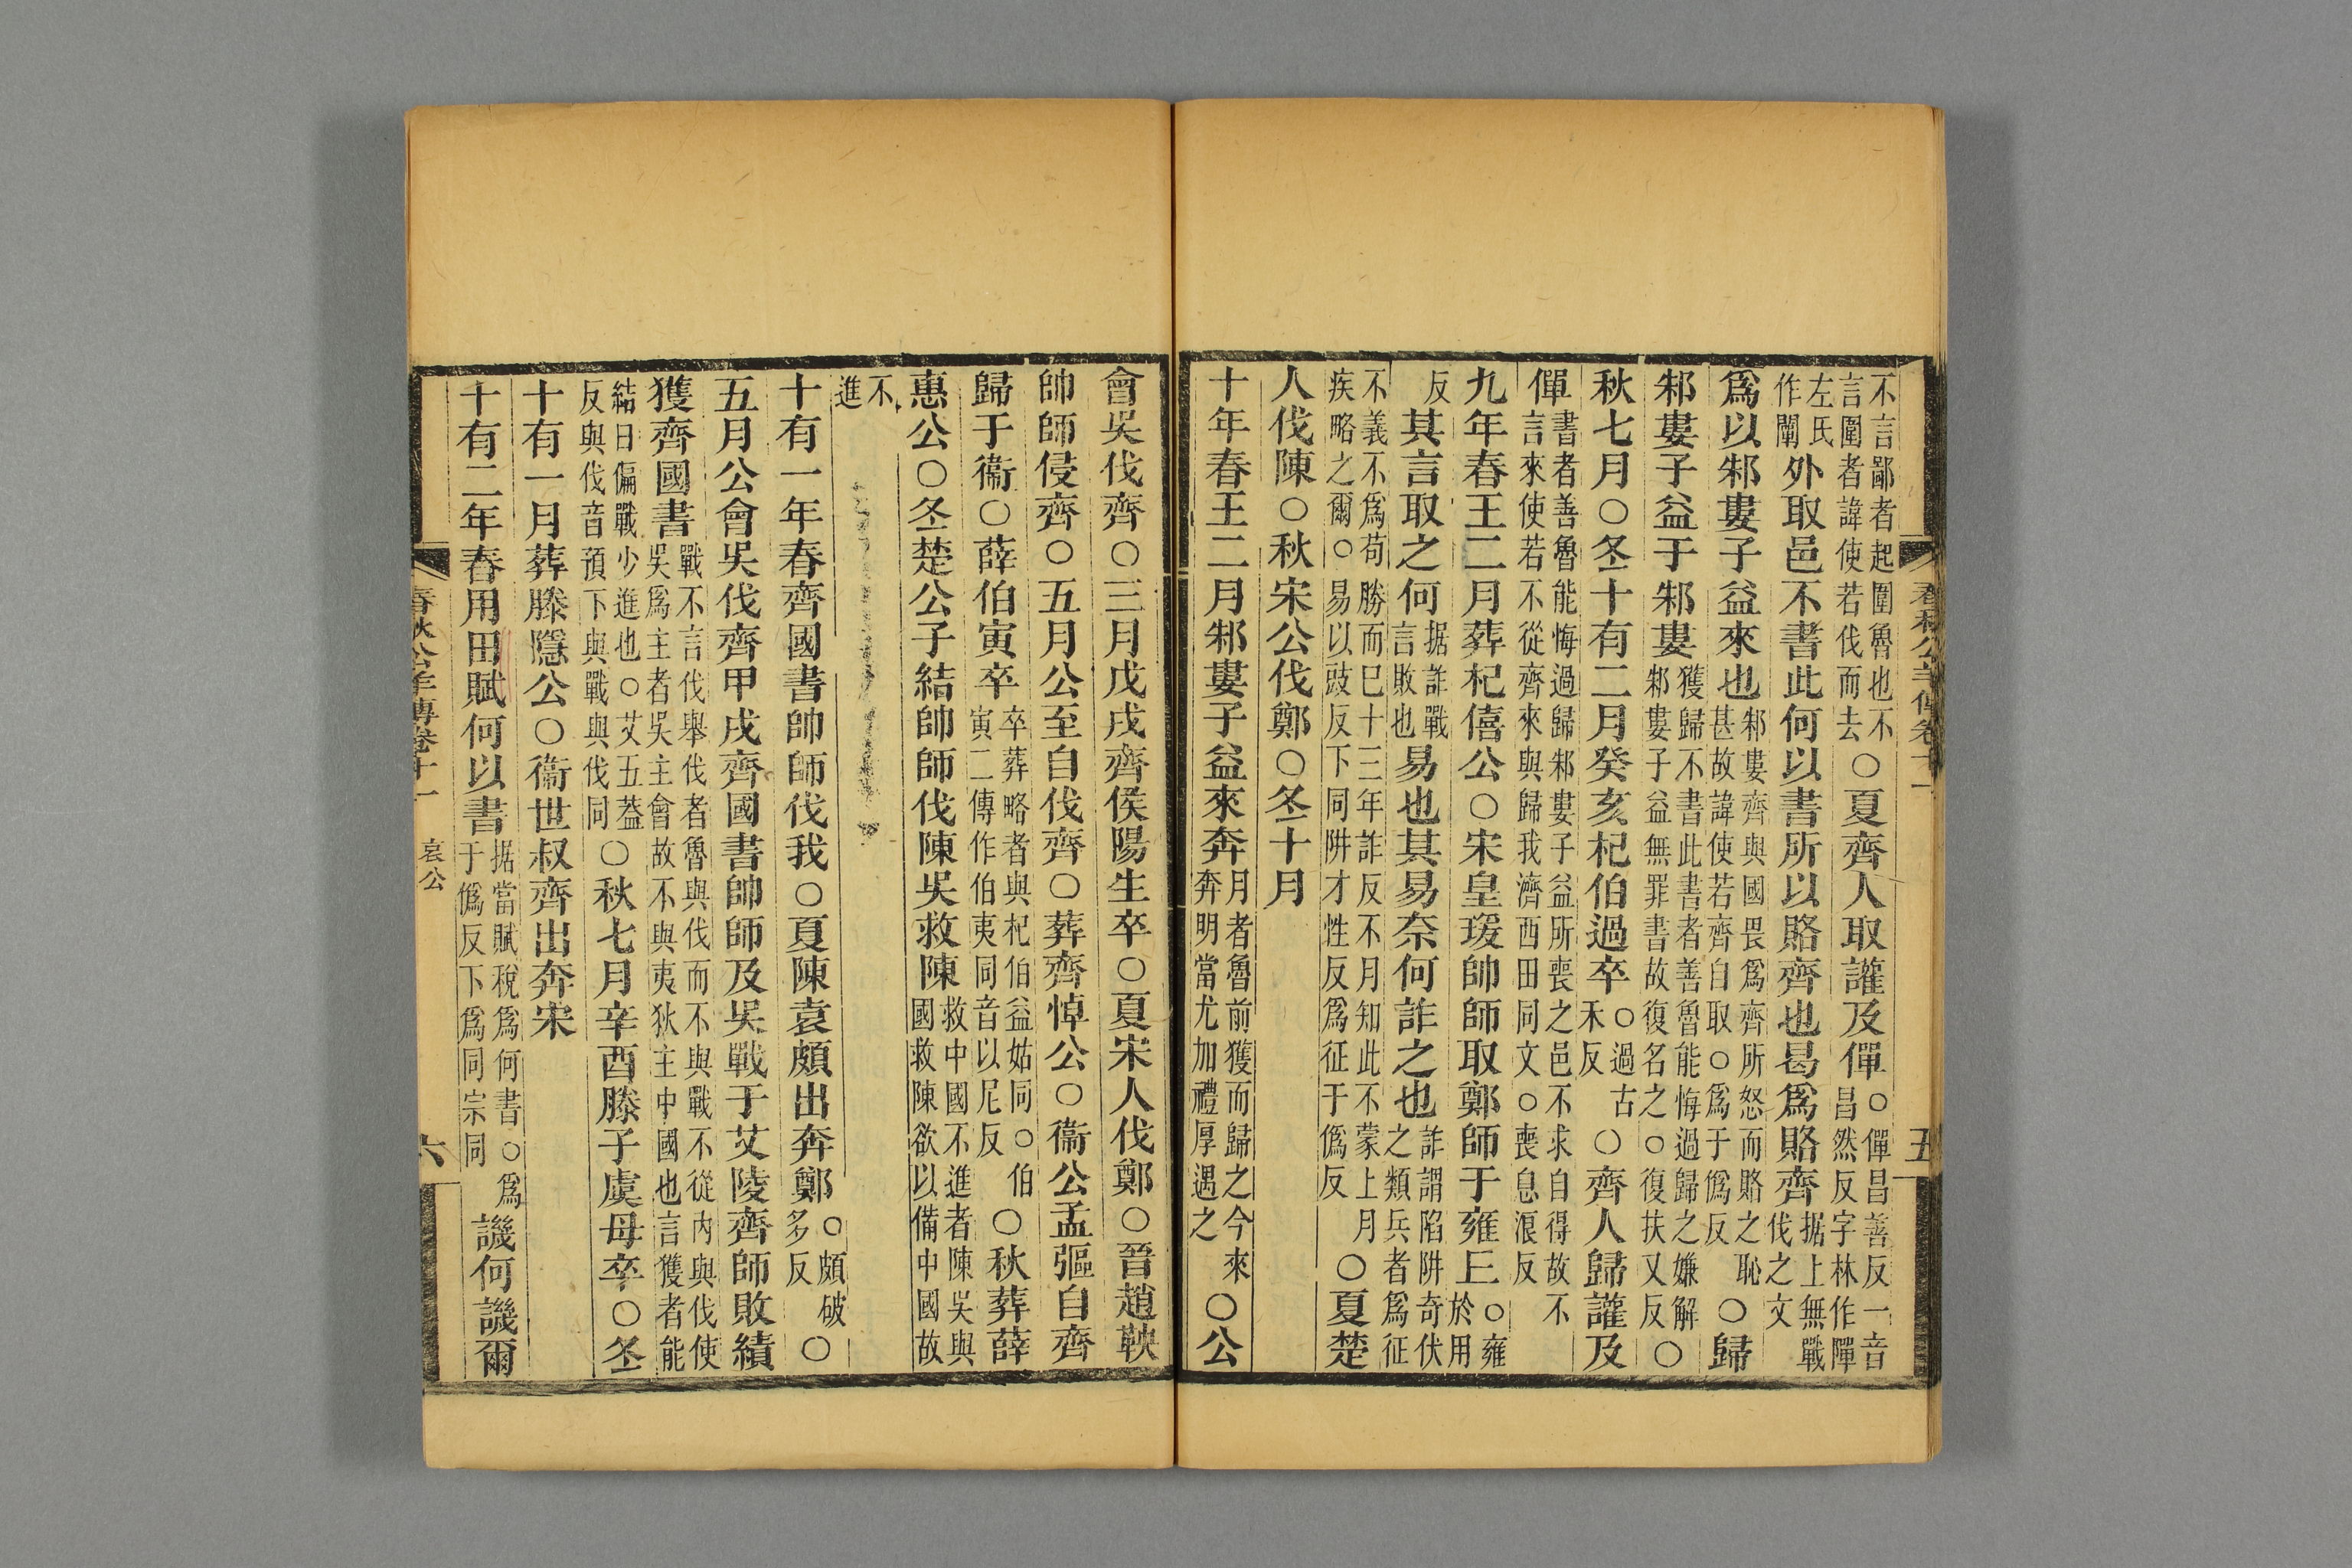 不言鄙者起圍魯也不言圍者諱使若伐而去○夏齊人取讙及僤○僤昌善反一音昌然反字林作僤
左氏作闡外取邑不書此何以書所以賂齊也曷爲賂齊据上無戰伐之文
爲以邾婁子益來也邾婁齊與國畏爲齊所怒而賂之恥甚故諱使若齊自取○爲于僞反○歸
邾婁子益于邾婁獲歸不書此書者善魯能悔過歸之嫌解邾婁子益無罪書故復名之○復扶又反○
秋七月○冬十有二月癸亥杞伯過卒○過古禾反○齊人歸讙及
僤書者善魯能悔過歸邾婁子益所喪之邑不求自得故不言來使若不從齊來與歸我濟西田同文○喪息浪反
九年春王二月葬杞僖公○宋皇瑗帥師取鄭師于雍丘○雍於用
反其言取之何据詐戰言敗也易也其易奈何詐之也詐謂陷阱奇伏之類兵者爲征
不義不爲苟勝而巳十三年詐反不月知此不蒙上月疾略之爾○易以豉反下同阱才性反爲征于僞反○夏楚
人伐陳○秋宋公伐鄭○冬十月
十年春王二月邾婁子益來奔月者魯前獲而歸之今來奔明當尤加禮厚遇之○公
春秋公羊傳卷十一 五
會吳伐齊○三月戊戌齊侯陽生卒○夏宋人伐鄭○晉趙鞅
帥師侵齊○五月公至自伐齊○葬齊悼公○衞公孟彄自齊
歸于衞○薛伯寅卒卒葬略者與杞伯益姑同○伯寅二傳作伯夷同音以尼反○秋葬薛
惠公○冬楚公子結帥師伐陳吳救陳救中國不進者陳吳與國救陳欲以備中國故
不進
十有一年春齊國書帥師伐我○夏陳袁頗出奔鄭○頗破多反○
五月公會吳伐齊甲戌齊國書帥師及吳戰于艾陵齊師敗績
獲齊國書戰不言伐舉伐者魯與伐而不與戰不從內與伐使吳爲主者吳主會故不與夷狄主中國也言獲者能
結日偏戰少進也○艾五蓋反與伐音預下與戰與伐同○秋七月辛酉滕子虞母卒○冬
十有一月葬滕隱公○衞世叔齊出奔宋
十有二年春用田賦何以書据當賦稅爲何書○爲于僞反下爲同宗同譏何譏爾
春秋公羊傳卷十一 哀公 六